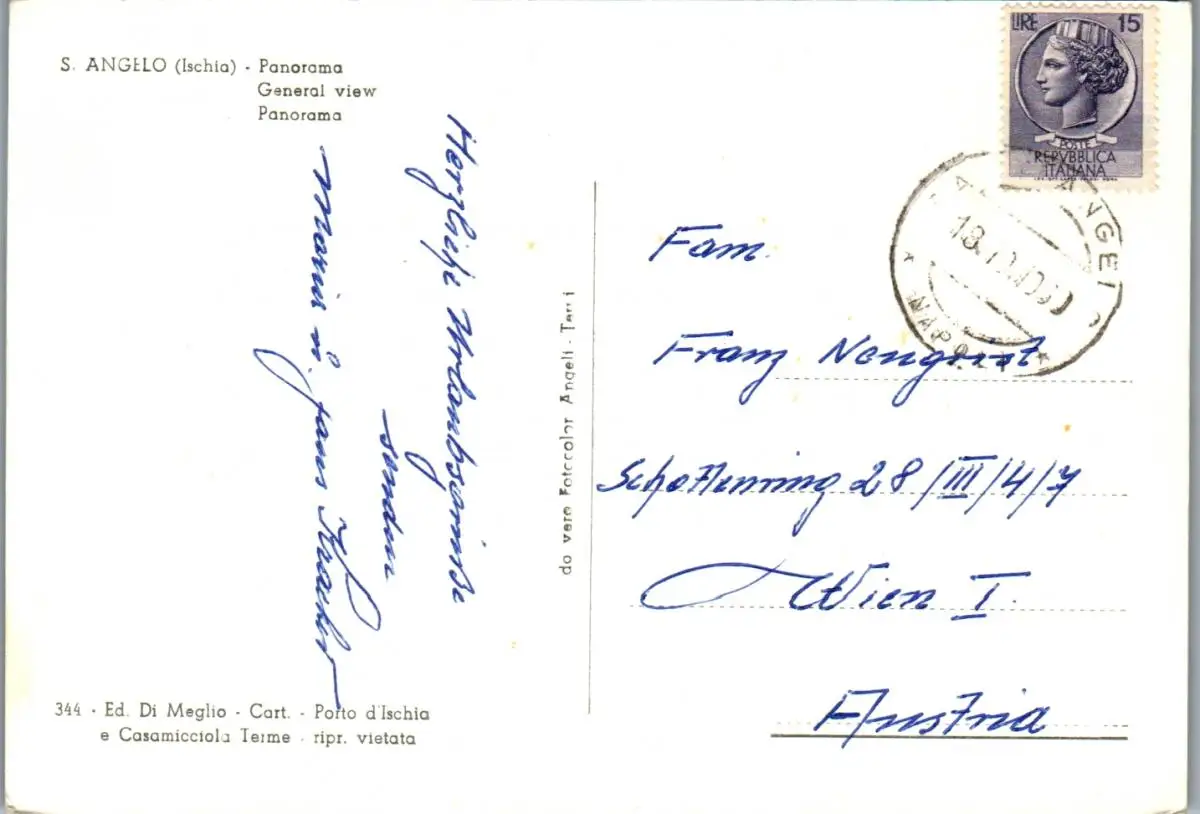 S. ANGELO (Ischia) - Panorama
General view
Panorama
Herzliche Urlaubsgrüße
senden
u.
344 - Ed. Di Meglio - Cart. - Porto d'Ischia
e Casamicciola Terme - ripr. vietata
da vere Fotocolor Angeli - Terni
LIRE 15
POSTE
REPVBBLICA
ITALIANA
ANGELO
NAPOLI
Fam.
Franz
Schottenring 28/III/4/7
Wien I.
Austria